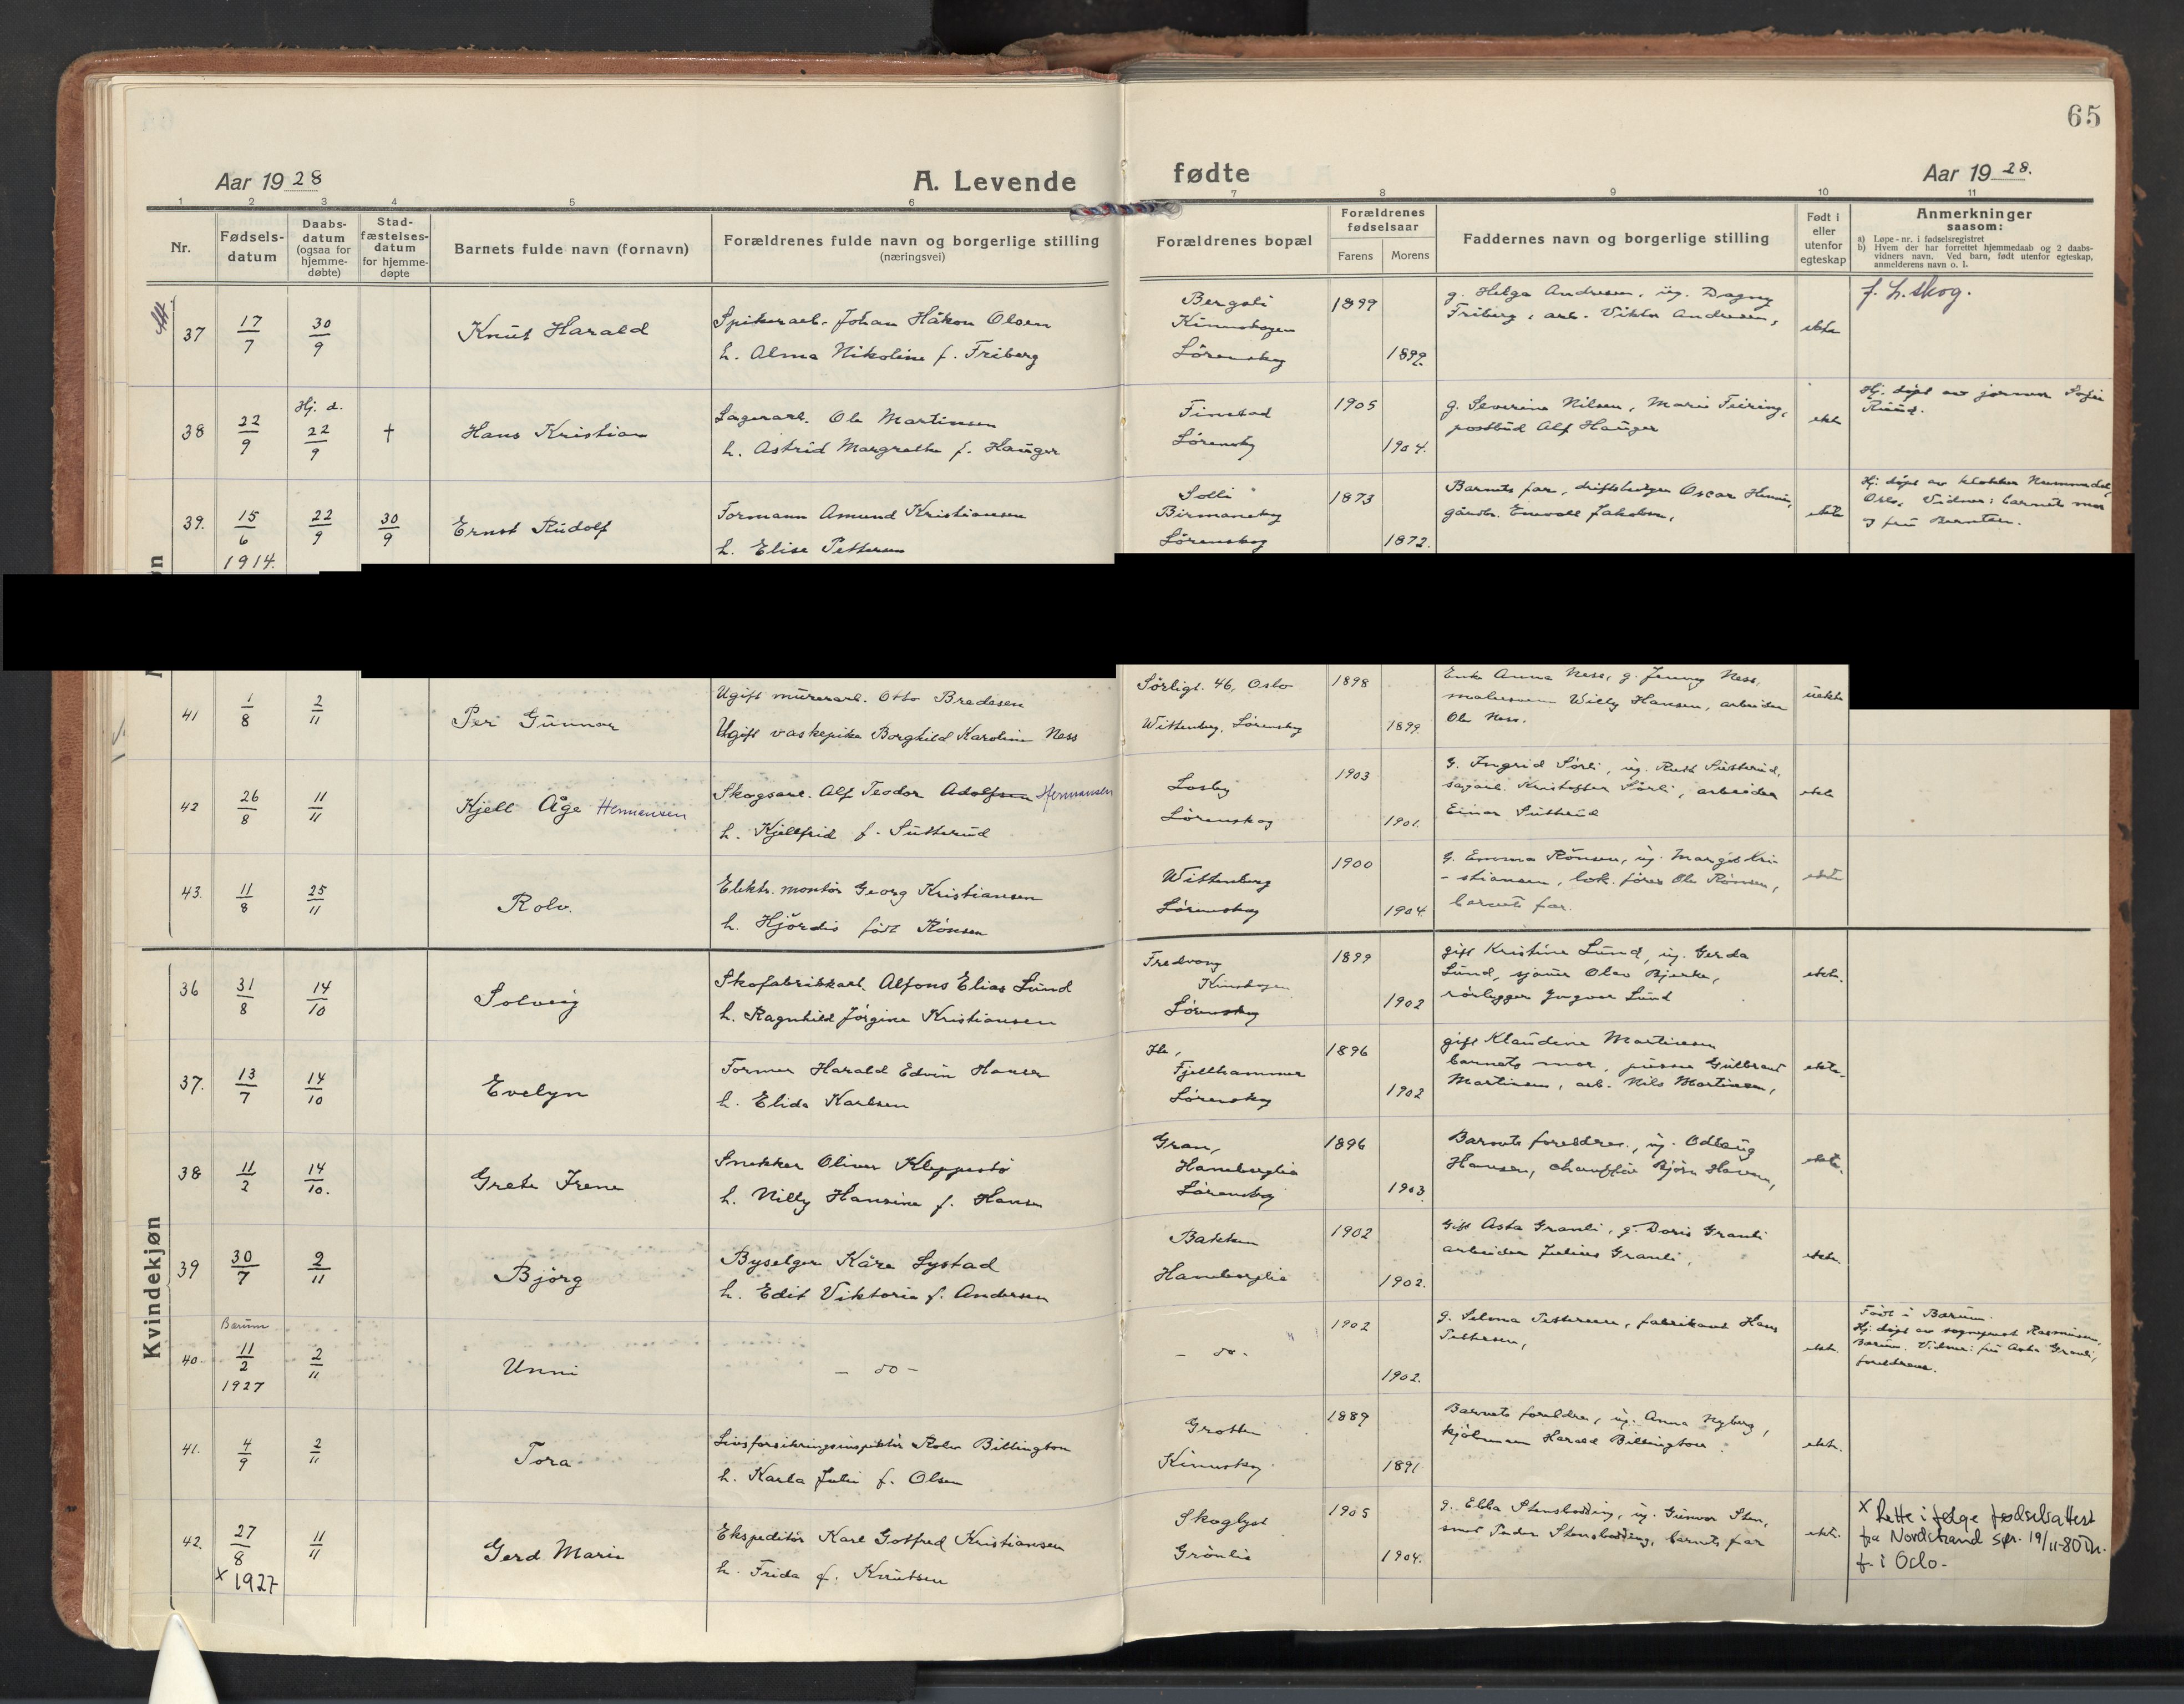 65
Aar 1928
A. Levende
fødte
Aar 1928.
1 2 3 4 5 6 7 8 9 10 11
Nr.
Fødsels-
datum
Daabs-
datum
(ogsaa for
hjemme-
døbte)
Stad-
fæstelses-
datum
for hjemme-
døpte
Barnets fulde navn (fornavn)
Forældrenes fulde navn og borgerlige stilling
(næringsvei)
Forældrenes bopæl
Forældrenes
fødselsaar
Farens Morens
Faddernes navn og borgerlige stilling
Født i
eller
utenfor
egteskap
Anmerkninger
saasom:
a) Løpe-nr. i fødselsregistret
b) Hvem der har forrettet hjemmedaab og 2 daabs-
vidners navn. Ved barn, født utenfor egteskap,
anmelderens navn o. l.
37
17/7
30/9
Knut Harald
Spikerarb. Johan Håkon Olsen
h. Alma Nikoline f. Friberg
Bergoli
Kinnskogen
Lørenskog
1899
1899.
g. Helga Andresen, ug. Dagny
Friberg, arb. Viktor Andresen,
ekte
f. L.skog.
38
22/9
Hj. d.
22/9
†
Hans Kristian
Lagerarb. Ole Martinsen
h. Astrid Margrethe f. Hauger
Finstad
Lørenskog
1905
1904.
g. Severine Nilsen, Marie Feiring,
postbud Alf Hauger
ekte
Hj. døpt av jormor Sofie
Ruud.
39.
15/6
1914.
22/9
30/9
Ernst Rudolf
Formann Amund Kristiansen
h. Elise Pettersen
Solli
Birmanskog
Lørenskog
1873
1872.
Barnets far, driftsbestyrer Oscar
gårdbr. Enevold Jakobsen,
ekte
Hj. døpt av klokker Nummedal,
Oslo. Vidner: barnets mor
og fru Berntsen.
41
1/8
2/11
Per Gunnar
Ugift murerarb. Otto Bredesen
Ugift vaskepike Borghild Karoline Ness
Sørligt. 46, Oslo
Wittenberg, Lørenskog
1898
1899.
Enke Anna Ness, g. Jenny Ness,
malersvenn Willy Hansen, arbeider
Ole Ness.
uekte
42
26/8
11/11
Kjell Åge Hermansen
Skogsarb. Alf Teodor Adolfsen Hermansen
h. Kjellfrid f. Sutterud
Losby
Lørenskog
1903
1901.
G. Ingrid Sørli, ug. Ruth Sutterud,
sagarb. Kristoffer Sørli, arbeider
Einar Sutterud
ekte
43.
11/8
25/11
Rolv.
Elektr. montør Georg Kristiansen
h. Hjørdis født Rönsen
Wittenberg
Lørenskog
1900
1904
G. Emma Rönsen, ug. Margit Kri-
-stiansen, lok. fører Ole Rönsen,
barnets far.
ekte
Kvindekjøn
36
31/8
14/10
Solveig
Skofabrikkarb. Alfons Elias Lund
h. Ragnhild Jørgine Kristiansen
Fredvang
Kinnskogen
Lørenskog
1899
1902
gift Kristine Lund, ug. Gerda
Lund, sjauer Olav Bjerke,
rørlegger Yngvar Lund
ekte.
37.
13/7
14/10
Evelyn
Former Harald Edvin Hansen
h. Elida Karlsen
Fjellhammer
Lørenskog
1896
1902
gift Klaudine Martinsen
barnets mor, pusser Gulbrand
Martinsen, arb. Nils Martinsen,
ekte.
38
11/2
14/10.
Grete Irene
Snekker Oliver Kleppestö
h. Nilly Hansine f. Hansen
Gran,
Haneborglia
Lørenskog
1896
1903.
Barnets foreldre, ug. Odlaug
Hansen, chauffør Bjørn Hansen,
ekte.
39
30/7
2/11
Bjørg
Byselger Kåre Lystad
h. Edit Viktoria f. Andersen
Bakken
Haneborglia
1902
1902.
Gift Asta Granli, g. Doris Granli
arbeider Julius Granli.
ekte.
40.
Bærum
11/2
1927
2/11
Unni
— do —
— do -
1902
1902.
g. Selma Pettersen, fabrikant Hans
Pettersen,
ekte.
Født i Bærum.
Hj. døpt av sogneprest Rasmussen,
Bærum. Vidner: fru Asta Granli,
foreldrene.
41.
4/9
2/11
Tora
Livsforsikringsinspektør Rolv Billington
h. Karla Julie f. Olsen
Grotten
Kinnskog
1889
1891
Barnets foreldre, ug. Anna Nyberg,
kjøbmann Harald Billington.
ekte.
42.
27/8
x 1927
11/11
Gerd Marie
Ekspeditør Karl Gotfred Kristiansen
h. Frida f. Knutsen
Skoglyst
Grönlia
1905
1904.
g. Ebba Stensbødding, ug. Gunvor Sten,
smed Peder Stensbødding, barnets far
ekte.
x Rette i følge fødselsattest
fra Nordstrand spr. 19/11-80
f. i Oslo.